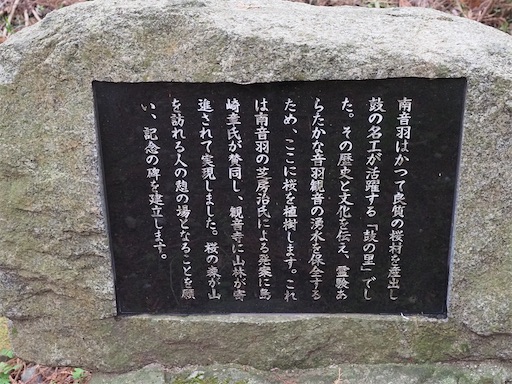 南音羽はかつて良質の桜材を産出し
鼓の名工が活躍する「鼓の里」でし
た。その歴史と文化を伝え、霊験あ
らたかな音羽観音の湧水を保全する
ため、ここに桜を植樹します。これ
は南音羽の芝房治氏による発案に島
崎幸氏が賛同し、観音寺に山林が寄
進されて実現しました。桜の森が山
を訪れる人の憩の場となることを願
い、記念の碑を建立します。